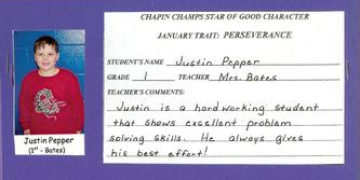 CHAPIN CHAMPS STAR OF GOOD CHARACTER
JANUARY TRAIT: PERSEVERANCE
STUDENT'S NAME Justin Pepper
GRADE 1 TEACHER Mrs. Bates
TEACHER'S COMMENTS:
Justin is a hard working student
that shows excellent problem
solving skills. He always gives
his best effort!
Justin Pepper
(1st - Bates)